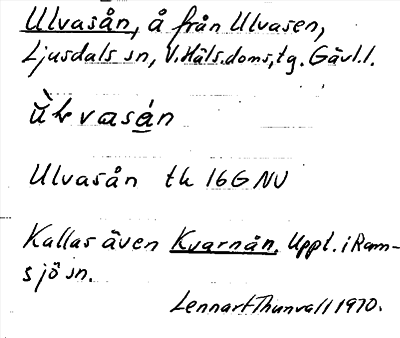 Ulvasån, å från Ulvasen,
Ljusdals sn, V.Häls.doms.tg. Gävl.l.
Ulvasån tk 16G NV
Kallas även Kvarnån, Uppt. i Ram-
sjö sn.
Lennart Thunvall 1970.